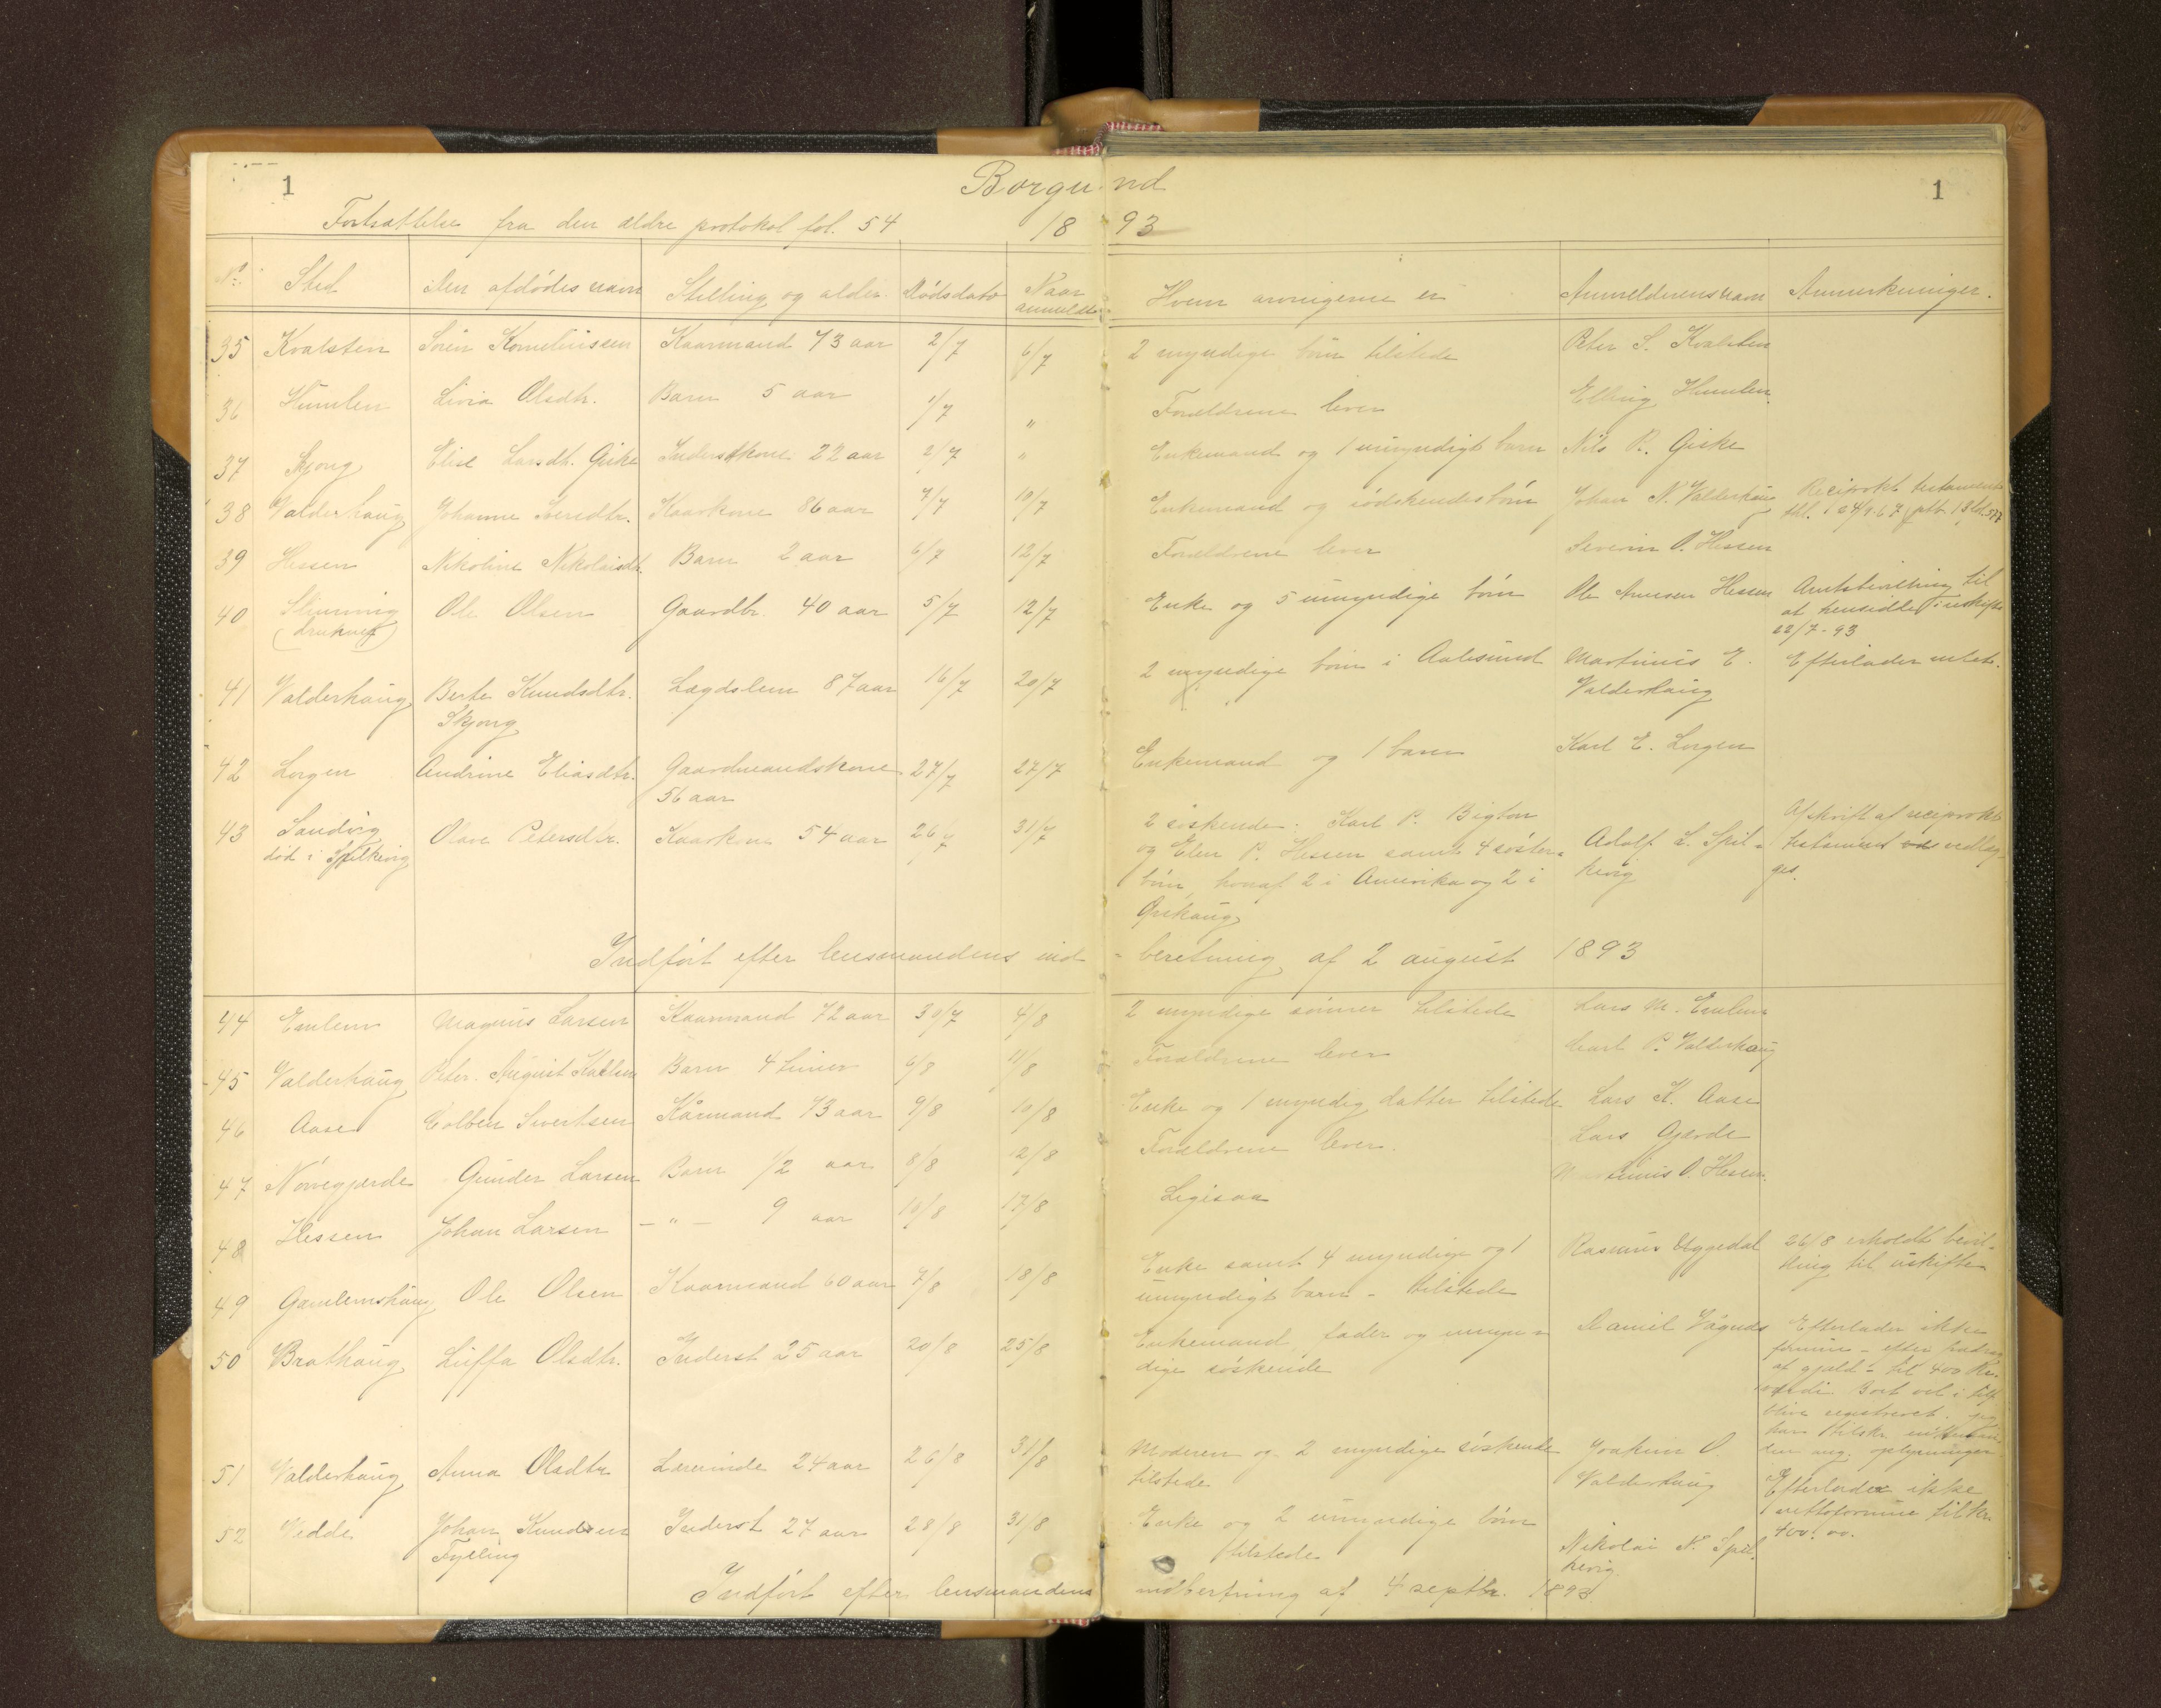 1
Borgund
1
Fortsættelse fra den ældre protokol fol. 54
1893
No. Sted Den afdødes navn Stilling og alder. Dødsdato Naar anmeldt Hvem arvingerne er Anmelderens navn Anmerkninger.
35 Kvalsten Sørin Korneliussen Kaarmand 73 aar 2/7 6/7 2 myndige børn tilstede Peter S. Kvalsten
36 Humlen Livia Olsdtr. Barn 5 aar 1/7 " Forældrene lever Elling Humlen.
37 Skjong Elise Larsdtr. Giske Inderstkone 22 aar 2/7 " Enkemand og 1 umyndigt barn Nils R. Giske
38 Valderhaug Johanne Iversdtr. Kaarkone 86 aar 7/7 10/7 Enkemand og södskendebörn Johan N. Valderhaug Reciprokt testamente
thl. 24/9-67
39 Hessen Nikoline Nikolaisdtr. Barn 2 aar 6/7 12/7 Forældrene lever Severin O. Hessen
40 Slinning Ole Olsen Gaardbr. 40 aar 5/7 12/7 Enke og 5 umyndige børn Ole Arnesen Hessen Amtsbevilling til
(druknet) at hensidde i uskifte
22/7-93
41 Valderhaug Berte Knudsdtr. Lægdslem 87 aar 16/7 20/7 2 myndige børn i Aalesund Martinus E. Efterlader intet.
Skjong Valderhaug
42 Lorgen Andrine Eliasdtr. Gaardmandskone 27/7 27/7 Enkemand og 1 barn Karl E. Lorgen
56 aar
43 Sandvig Olave Petersdtr. Kaarkone 54 aar 26/7 31/7 2 søskende: Karl P. Bigton Adolf L. Spil- Afskrift af reciprokt
død i Spilkevig og Elen P. Hessen samt 4 søster- kevig testament vedlæg-
børn, hvoraf 2 i Amerika og 2 i ges.
Ørskaug
Indført efter lensmandens ind- beretning af 2 august 1893
44 Emlem Magnus Larsen Kaarmand 72 aar 30/7 4/8 2 myndige sønner tilstede Lars M. Emlem
45 Valderhaug Peter August Karlsen Barn 4 timer 6/8 11/8 Forældrene lever Karl P. Valderhaug
46 Aase Colben Sivertsen Kårmand 73 aar 9/8 10/8 Enke og 1 myndig datter tilstede Lars K. Aase
47 Nörvegjerde Gunder Larsen Barn 1/2 aar 8/8 12/8 Forældrene lever. Lars Gjerde
48 Hessen Johan Larsen — " — 9 aar 10/8 17/8 Ligesaa Martinus O. Hessen.
49 Gamlemshaug Ole Olsen Kaarmand 60 aar 7/8 18/8 Enke samt 4 myndige og 1 Rasmus Uggedal 26/8 erholdt bevil-
umyndigt barn - tilstede ling til uskifte
50 Brathaug Luffa Olsdtr. Inderst 25 aar 20/8 25/8 Enkemand, fader og umyn- Daniel Vågnes Efterlader ikke
dige søskende formue - efter fradrag
af gjæld - til 400 Kr.
værdi. Boet vil i tilf.
blive registreret.
51 Valderhaug Anna Olsdtr. Lærerinde 24 aar 26/8 31/8 Moderen og 2 myndige søskende Joakim O.
tilstede Valderhaug
52 Vedde Johan Knudsen Inderst 27 aar 28/8 31/8 Enke og 2 umyndige børn Nikolai N. Spil- Efterlader ikke
Fylling tilstede kevig. nettoformue til kr.
400.00.
Indført efter lensmandens indberetning af 4 septbr. 1893.